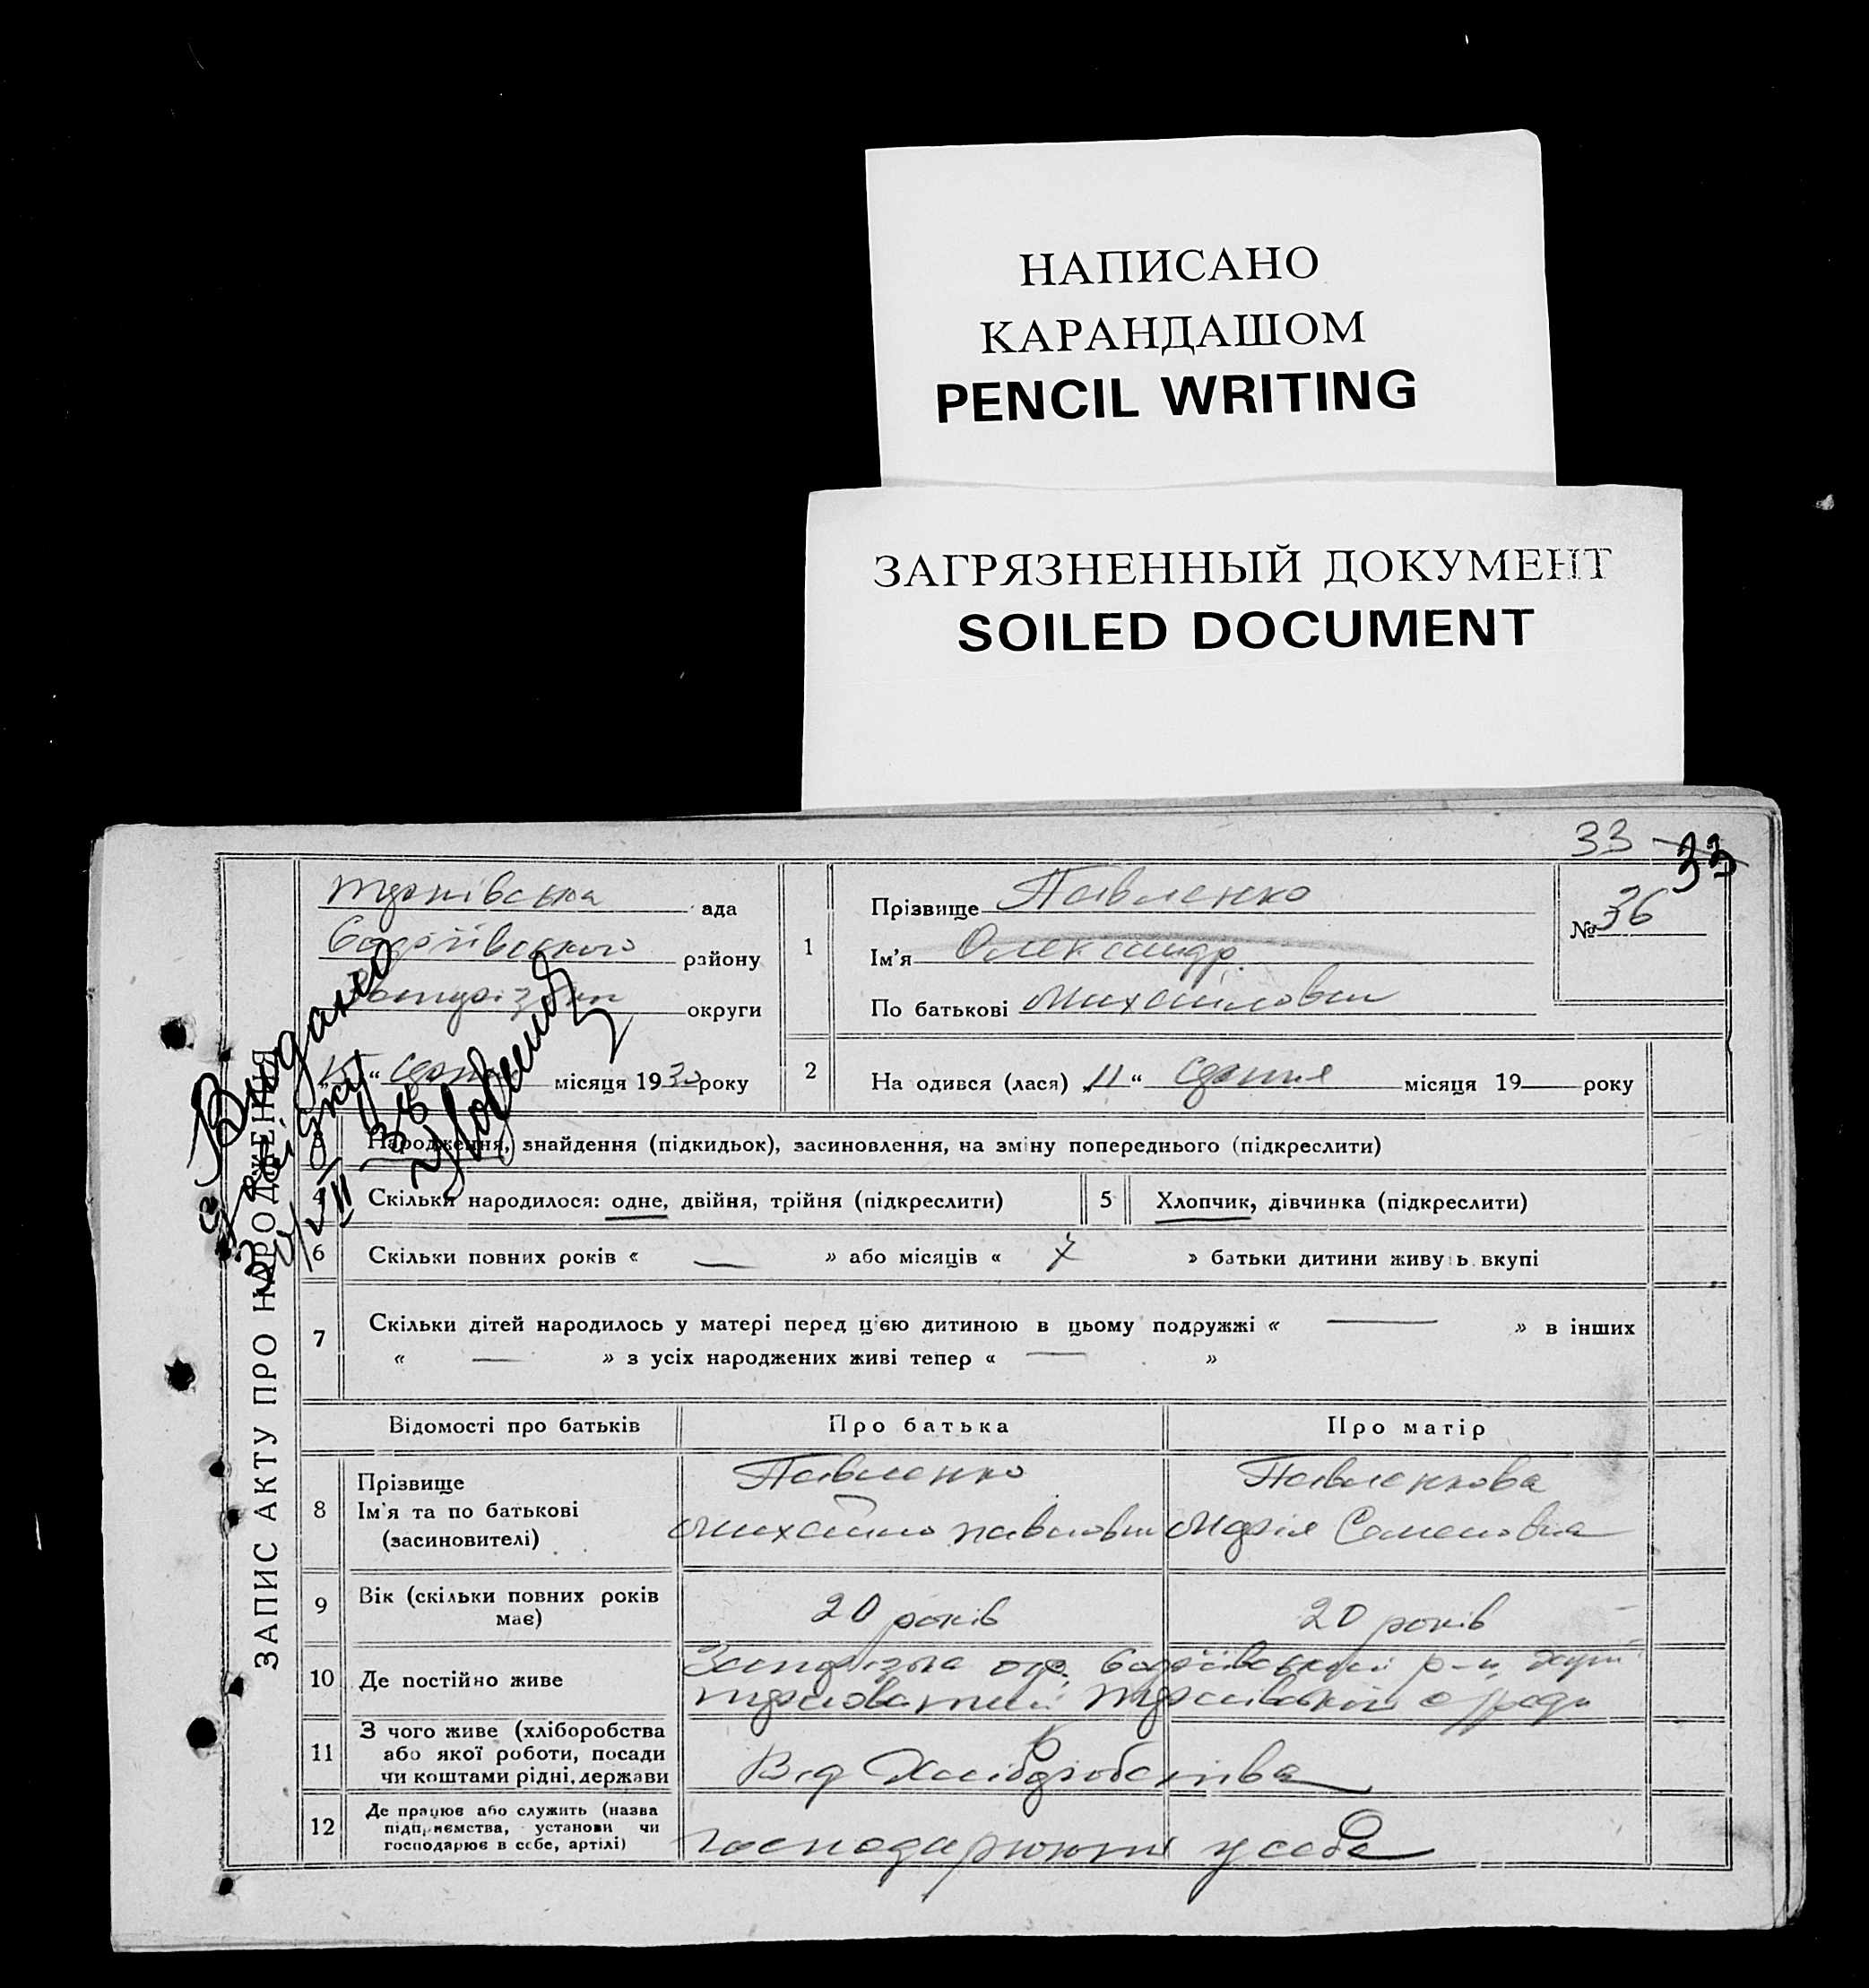 НАПИСАНО
КАРАНДАШОМ
PENCIL WRITING
ЗАГРЯЗНЕННЫЙ ДОКУМЕНТ
SOILED DOCUMENT
33
33
ЗАПИС АКТУ ПРО НАРОДЖЕННЯ
ада
району
округи
місяця 1930 року
Видано
1
Прізвище Павленко
Ім'я Олександр
По батькові Михайлович
№ 36
2
На одився (лася) „11“ Сдання місяця 19 — року
3 Народження, знайдення (підкидьок), засиновлення, на зміну попереднього (підкреслити)
4 Скільки народилося: одне, двійня, трійня (підкреслити)
5 Хлопчик, дівчинка (підкреслити)
6 Скільки повних років « — » або місяців « 7 » батьки дитини живу ь вкупі
7 Скільки дітей народилось у матері перед цією дитиною в цьому подружжі « — » в інших
« — » з усіх народжених живі тепер « — »
Відомості про батьків
Про батька
Про матір
8
Прізвище
Ім'я та по батькові
(засиновителі)
Павленко
Михайло Павлович
Павленкова
Марія Семеновна
9
Вік (скільки повних років
має)
20 років
20 років
10 Де постійно живе
11
З чого живе (хліборобства
або якої роботи, посади
чи коштами рідні, держави
Від Хліборобства
12
Де працює або служить (назва
підприємства, установи чи
господарює в себе, артілі)
господарюють у себе